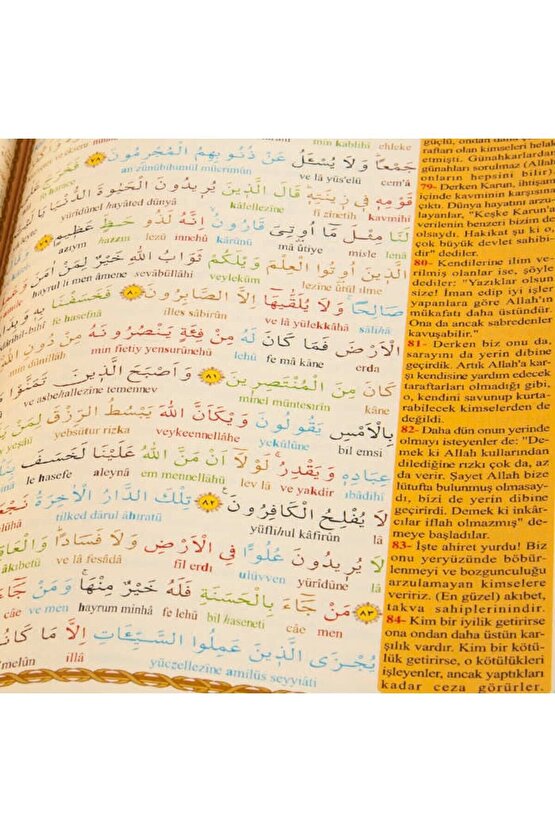 ehleke min kablihî
جَمْعًا وَلَا يُسْـَٔلُ عَنْ ذُنُوبِهِمُ الْمُجْرِمُونَ ﴿٧٨﴾
cem'â ve lâ yüs'elü an zünûbihimül mücrimûn
قَوْمِهِ فِي زِينَتِهِ قَالَ الَّذِينَ يُرِيدُونَ الْحَيٰوةَ الدُّنْيَا
kavmihî fî zînetih kâlellezîne yürîdûnel hayâted dünyâ
لَنَا مِثْلَ مَا أُوتِيَ قَارُونُ إِنَّهُ لَذُو حَظٍّ عَظِيمٍ ﴿٧٩﴾
lenâ misle mâ ûtiye kârûnü innehû lezû hazzın azîym
الَّذِينَ أُوتُوا الْعِلْمَ وَيْلَكُمْ ثَوَابُ اللّٰهِ خَيْرٌ لِمَنْ اٰمَنَ
lezîne ûtül ılme veyleküm sevâbüllâhi hayrul li men âmene
صَالِحًا وَلَا يُلَقّٰيهَا إِلَّا الصَّابِرُونَ ﴿٨٠﴾ فَخَسَفْنَا
sâlihâ ve lâ yülekkâhâ illes sâbirûn fe hasefnâ
الْأَرْضَ فَمَا كَانَ لَهُ مِنْ فِئَةٍ يَنْصُرُونَهُ
erda fe mâ kâne lehû min fietiy yensurûnehû
كَانَ مِنَ الْمُنْتَصِرِينَ ﴿٨١﴾ وَأَصْبَحَ الَّذِينَ تَمَنَّوْا
kâne minel müntesırîn ve asbehallezîne temennev
بِالْأَمْسِ يَقُولُونَ وَيْكَأَنَّ اللّٰهَ يَبْسُطُ الرِّزْقَ لِمَنْ
bil emsi yekûlûne veykeennellâhe yebsütur rizka
عِبَادِهِ وَيَقْدِرُ لَوْلَا أَنْ مَنَّ اللّٰهُ عَلَيْنَا لَخَسَفَ
ıbâdihî ve yakdir lev lâ em mennellâhü aleynâ le hasefe
لَا يُفْلِحُ الْكَافِرُونَ ﴿٨٢﴾ تِلْكَ الدَّارُ الْاٰخِرَةُ
yüflihul kâfirûn tilked dârul âhıratü
لَا يُرِيدُونَ عُلُوًّا فِي الْأَرْضِ وَلَا فَسَادًا
lâ yürîdûne ulüvven fil erdı ve lâ fesâdâ
﴿٨٣﴾ مَنْ جَاءَ بِالْحَسَنَةِ فَلَهُ خَيْرٌ مِنْهَا وَمَنْ جَاءَ
men câe bil haseneti fe lehû hayrum minhâ ve men câe
يُجْزَى الَّذِينَ عَمِلُوا السَّيِّئَاتِ إِلَّا مَا كَانُوا
yüczellezîne amilüs seyyiâti illâ
rafları olan kimseleri helak
etmişti. Günahkarlardan
günahları sorulmaz (Allah
onların hepsini bilir).
79- Derken Karun, ihtişamı
içinde kavminin karşısına
çıktı. Dünya hayatını arzu-
layanlar, "Keşke Karun'a
verilenin benzeri bizim de
olsaydı. Hakikat şu ki o,
çok büyük devlet sahibi-
dir" dediler.
80- Kendilerine ilim ve-
rilmiş olanlar ise, şöyle
dediler: "Yazıklar olsun
size! İman edip iyi işler
yapanlara göre Allah'ın
mükafatı daha üstündür.
Ona da ancak sabredenler
kavuşabilir."
81- Derken biz onu da,
sarayını da yerin dibine
geçirdik. Artık Allah'a kar-
şı kendisine yardım edecek
taraftarları olmadığı gibi,
o, kendini savunup kurta-
rabilecek kimselerden de
değildi.
82- Daha dün onun yerinde
olmayı isteyenler de: "De-
mek ki Allah kullarından
dilediğine rızkı çok da, az
da verir. Şayet Allah bize
lütufta bulunmuş olmasay-
dı, bizi de yerin dibine
geçirirdi. Demek ki inkâr-
cılar iflah olmazmış" de-
meye başladılar.
83- İşte ahiret yurdu! Biz
onu yeryüzünde böbür-
lenmeyi ve bozgunculuğu
arzulamayan kimselere
veririz. (En güzel) akıbet,
takva sahiplerinindir.
84- Kim bir iyilik getirirse
ona ondan daha üstün kar-
şılık vardır. Kim bir kötü-
lük getirirse, o kötülükleri
işleyenler, ancak yaptıkları
kadar ceza görürler.